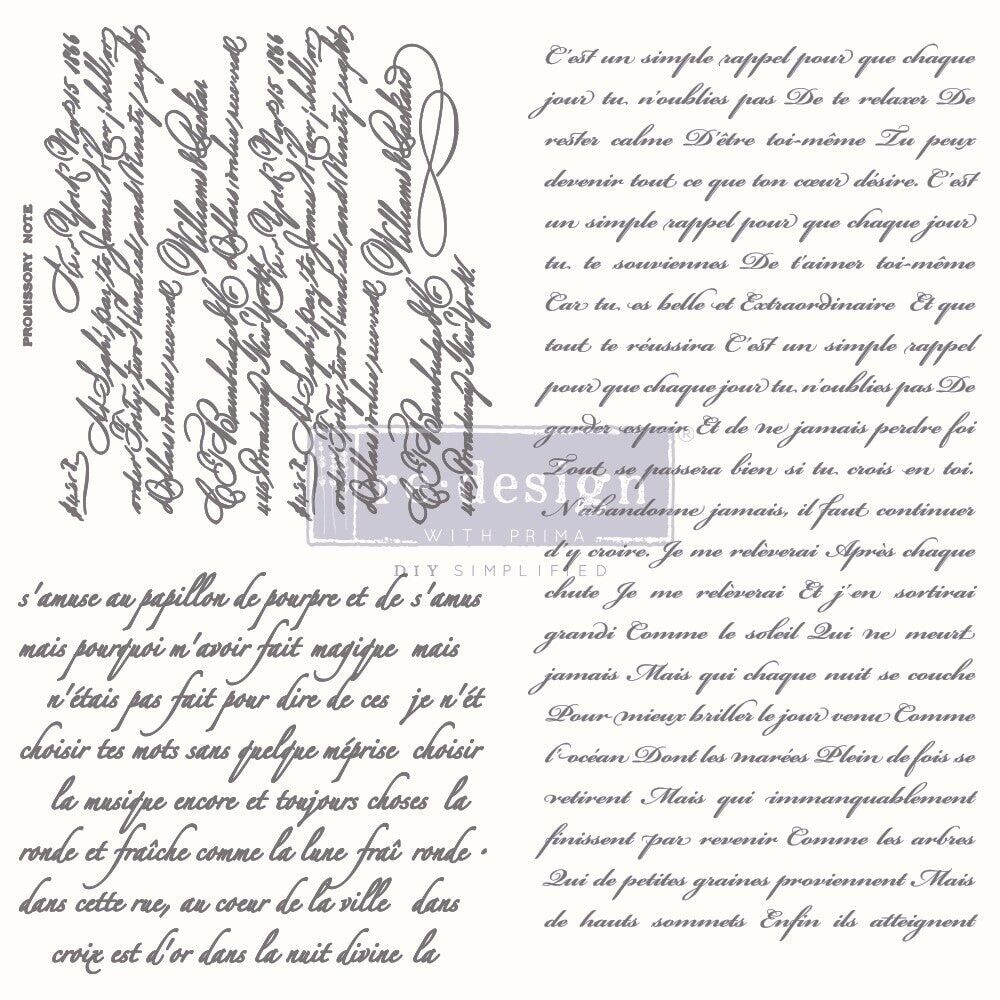 PROMISSORY NOTE
New York Nov 15 1866
At Sight pay to James
Dollars value received
William Barker
445 Broadway New York
New York Nov 15 1866
At Sight pay to James
Dollars value received
William Barker
445 Broadway New York.
re·design®
WITH PRIMA
DIY SIMPLIFIED
s'amuse au papillon de pourpre et de s'amus
mais pourquoi m'avoir fait magique mais
n'étais pas fait pour dire de ces je n'ét
choisir tes mots sans quelque méprise choisir
la musique encore et toujours choses la
ronde et fraîche comme la lune fraî ronde •
dans cette rue, au coeur de la ville dans
croix est d'or dans la nuit divine la
C'est un simple rappel pour que chaque
jour tu n'oublies pas De te relaxer De
rester calme D'être toi-même Tu peux
devenir tout ce que ton cœur désire. C'est
un simple rappel pour que chaque jour
tu te souviennes De t'aimer toi-même
Car tu es belle et Extraordinaire Et que
tout te réussira C'est un simple rappel
pour que chaque jour tu n'oublies pas De
garder espoir Et de ne jamais perdre foi
Tout se passera bien si tu crois en toi.
N'abandonne jamais, il faut continuer
d'y croire. Je me relèverai Après chaque
chute Je me relèverai Et j'en sortirai
grandi Comme le soleil Qui ne meurt
jamais Mais qui chaque nuit se couche
Pour mieux briller le jour venu Comme
l'océan Dont les marées Plein de fois se
retirent Mais qui immanquablement
finissent par revenir Comme les arbres
Qui de petites graines proviennent Mais
de hauts sommets Enfin ils atteignent